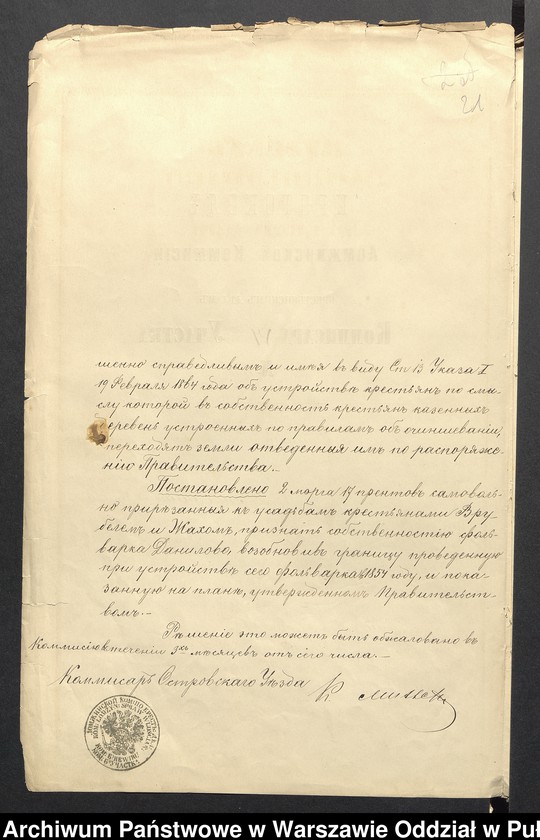 2 об
21
шенно справедливымъ и имѣя въ виду Ст 13 Указа
19 Февраля 1864 года объ устройствѣ крестьянъ по смы-
слу которой въ собственность крестьянъ казенныхъ
деревень устроенныхъ по правиламъ объ очиншеваніи,
переходятъ земли отведенныя имъ по распоряже-
нію Правительства.—
Постановлено 2 морга 17 прентовъ самоволь-
но прирѣзанныя къ усадьбамъ крестьянами Вру-
белемъ и Жахомъ, признать собственностію фоль-
варка Данилово, возобновивъ границу проведенную
при устройствѣ сего фольварка въ 1854 году, и пока-
занную на планѣ, утвержденномъ Правительст-
вомъ.—
Рѣшеніе это можетъ быть обжаловано въ
Коммисію втеченіи 3хъ мѣсяцевъ отъ сего числа.—
Коммисаръ Островскаго Уѣзда
Archiwum Państwowe w Warszawie Oddział w Puł